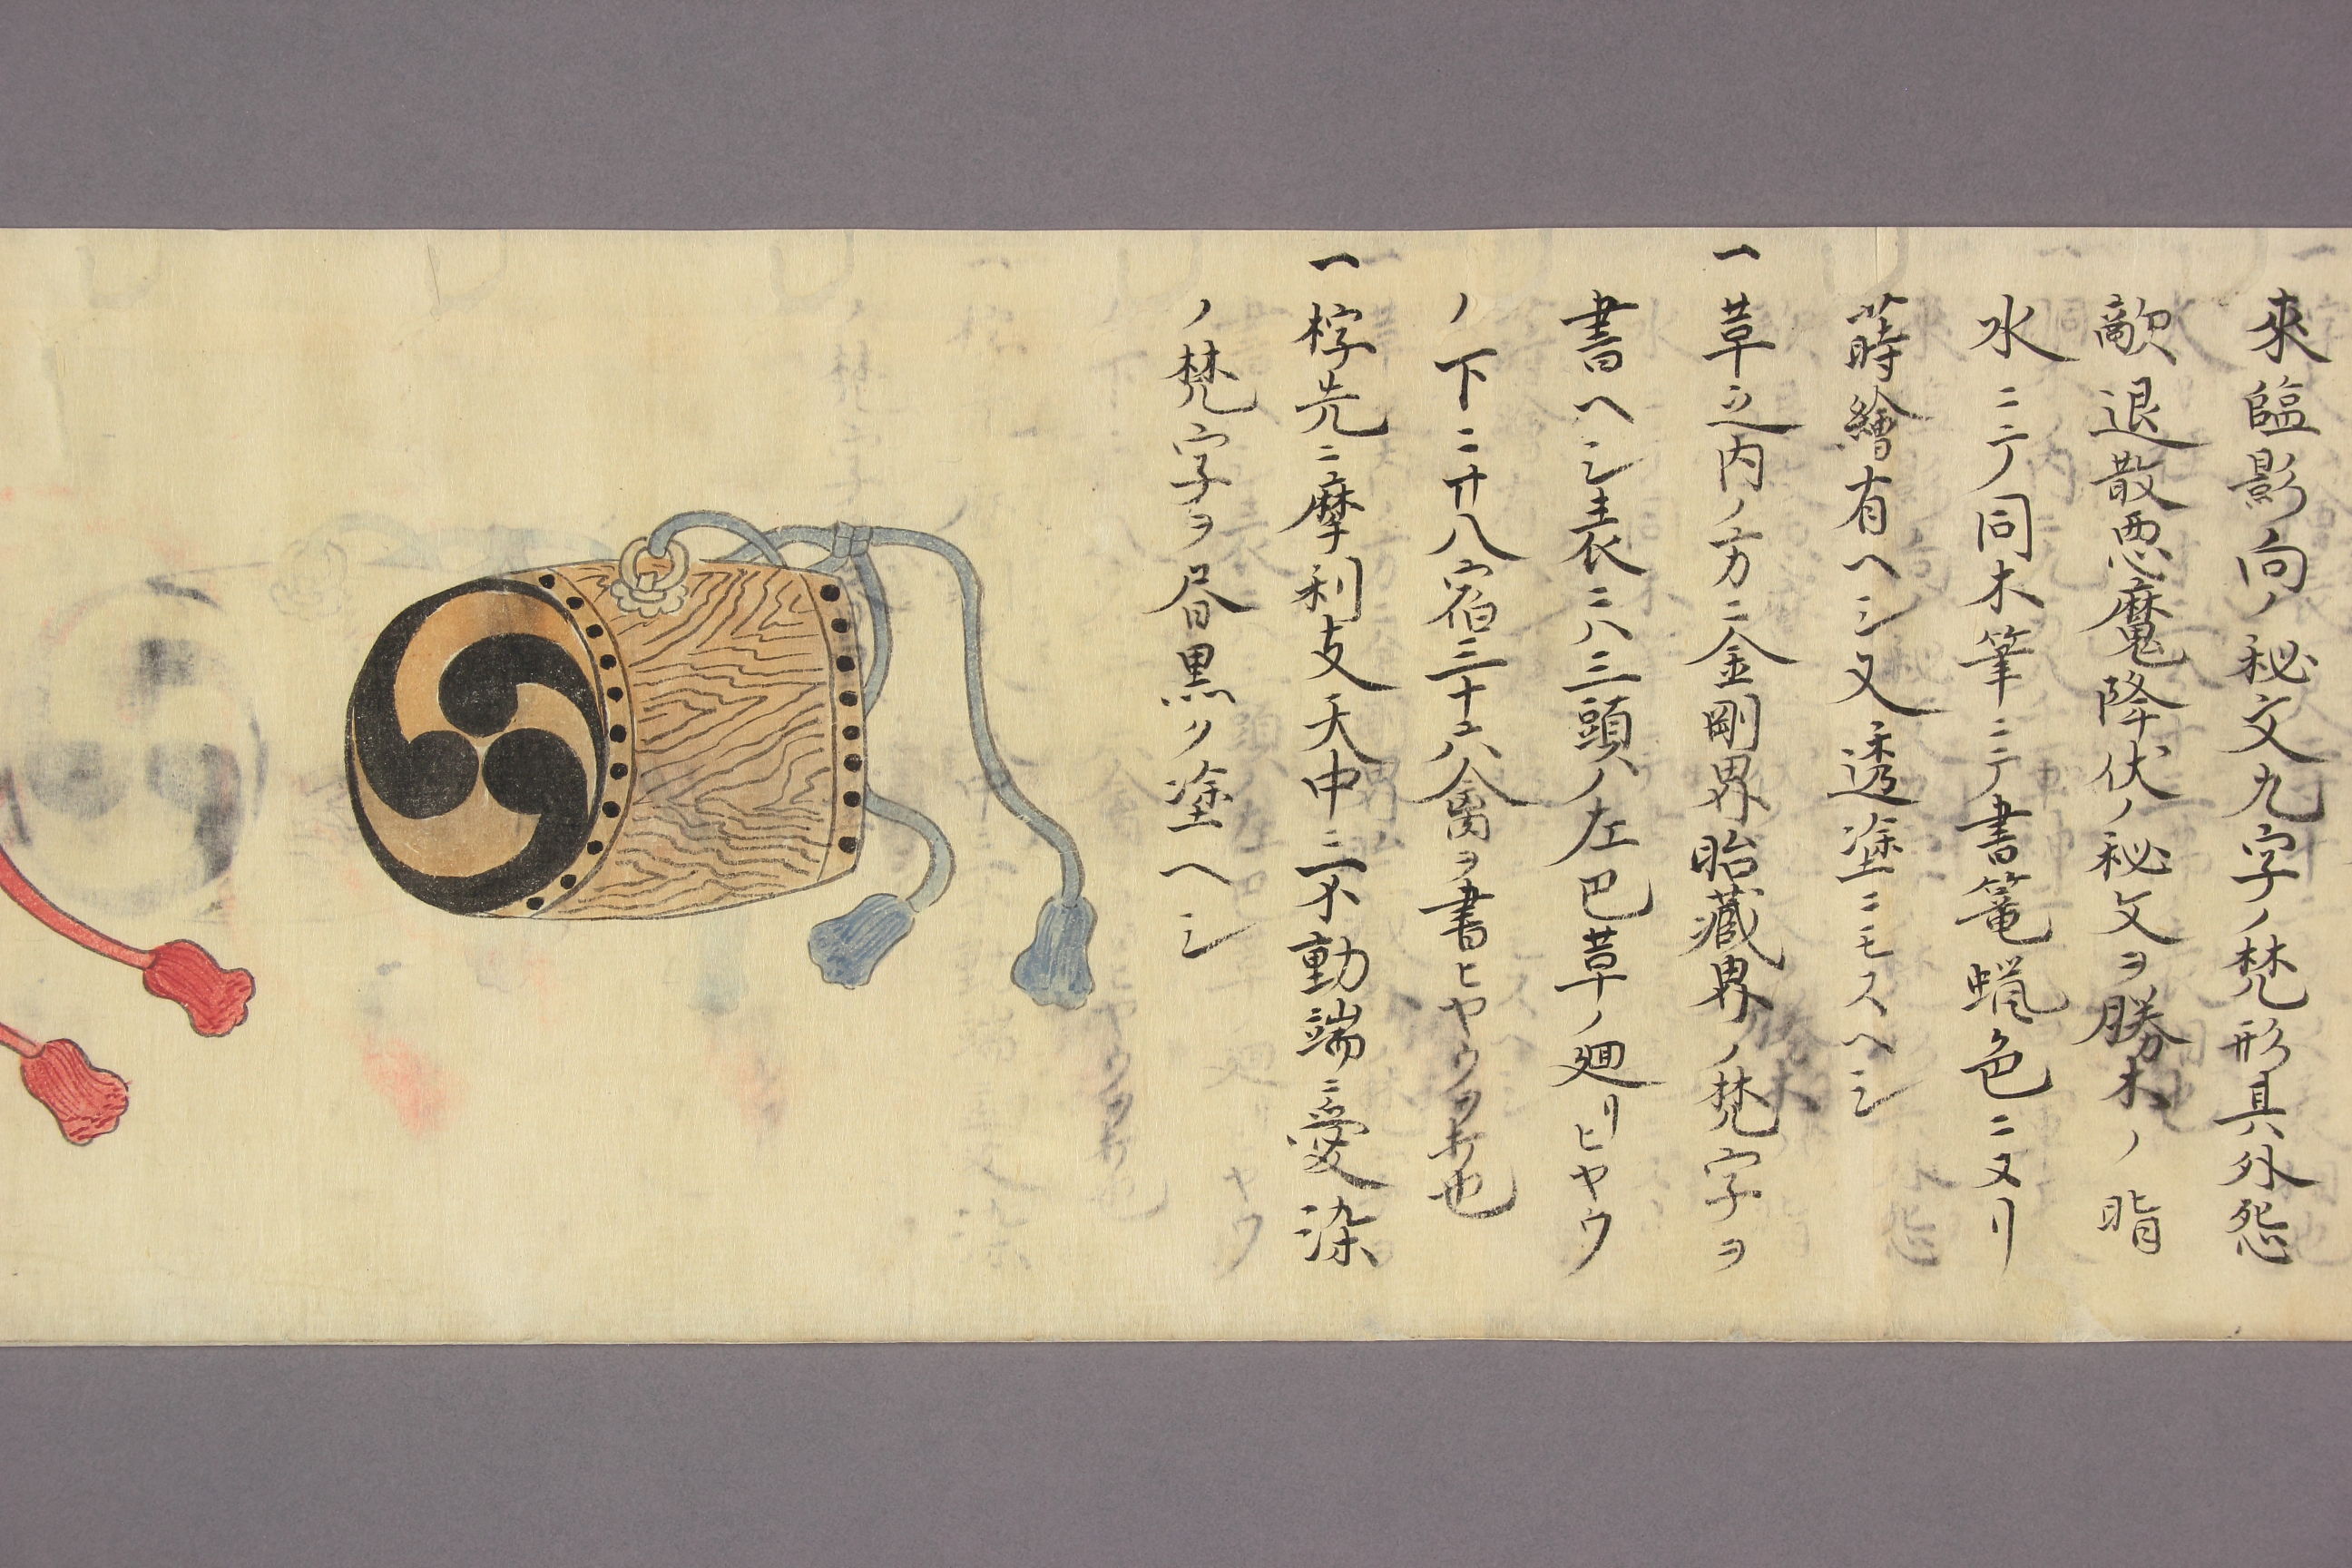 来臨影向ノ秘文九字ノ梵形具外怨
敵退散悪魔降伏ノ秘文ヲ勝木ノ脂
水ニテ同木筆ニテ書篭蝋色ニヌリ
蒔繪有ヘシ又透塗ニモスヘシ
一草之内ノ方ニ金剛界胎蔵界ノ梵字ヲ
書ヘシ表ニハ三頭ノ左巴草ノ廻リヒヤウ
ノ下ニ廿八宿三十六禽ヲ書ヒヤウヲ打也
一桴先ニ摩利支天中ニ不動端ニ愛染
ノ梵字ヲ昏黒ク塗ヘシ